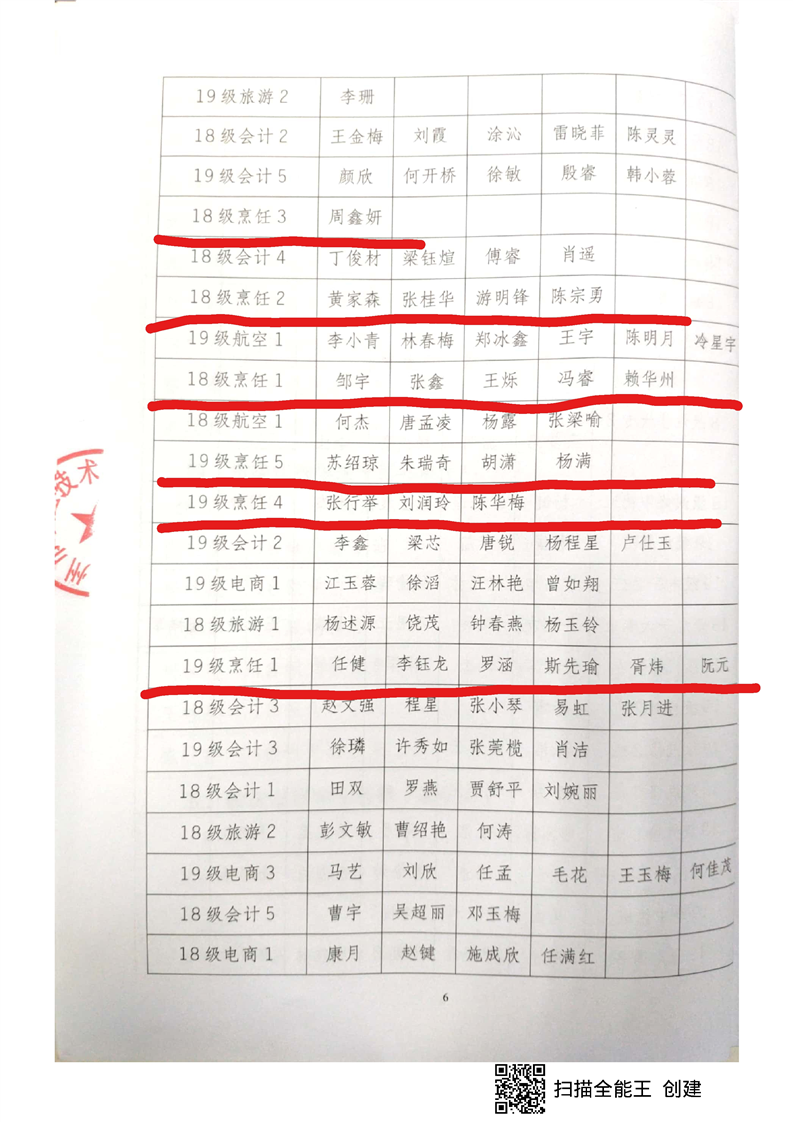 19级旅游2 李珊
18级会计2 王金梅 刘霞 涂沁 雷晓菲 陈灵灵
19级会计5 颜欣 何开桥 徐敏 殷睿 韩小蓉
18级烹饪3 周鑫妍
18级会计4 丁俊材 梁钰煊 傅睿 肖遥
18级烹饪2 黄家森 张桂华 游明锋 陈宗勇
19级航空1 李小青 林春梅 郑冰鑫 王宇 陈明月 冷星宇
18级烹饪1 邹宇 张鑫 王烁 冯睿 赖华州
18级航空1 何杰 唐孟凌 杨露 张梁喻
19级烹饪5 苏绍琼 朱瑞奇 胡潇 杨满
19级烹饪4 张行举 刘润玲 陈华梅
19级会计2 李鑫 梁芯 唐锐 杨程星 卢仕玉
19级电商1 江玉蓉 徐滔 汪林艳 曾如翔
18级旅游1 杨述源 饶茂 钟春燕 杨玉铃
19级烹饪1 任健 李钰龙 罗涵 斯先瑜 胥炜 阮元
18级会计3 赵文强 程星 张小琴 易虹 张月进
19级会计3 徐璘 许秀如 张莞榄 肖洁
18级会计1 田双 罗燕 贾舒平 刘婉丽
18级旅游2 彭文敏 曹绍艳 何涛
19级电商3 马艺 刘欣 任孟 毛花 王玉梅 何佳茂
18级会计5 曹宇 吴超丽 邓玉梅
18级电商1 康月 赵键 施成欣 任满红
技术
州
6
扫描全能王 创建